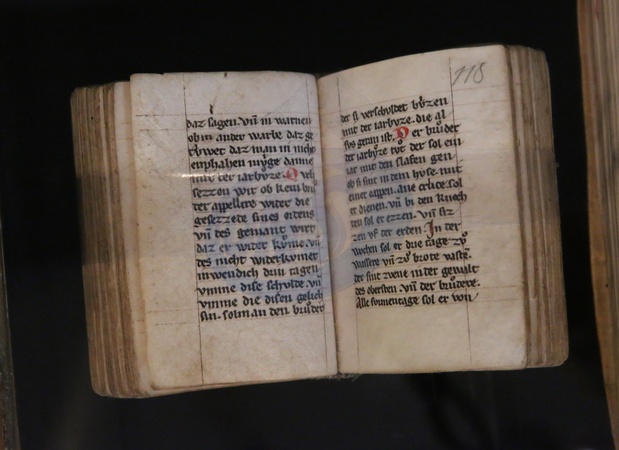 daz sagen. vn̄ in warnen
ob in ander warbe daz ge
daz man in nicht
enphahen mvͦge danne
mit der iarbvͦze.
sezzen wir ob kein brv
der appellere wider die
gesezzede sines ordens
vn̄ des gemant wirt
daz er wider kvͦme. vn̄
des nicht widerkvmet
inwendich drin tagen
vmme dise schvlde. vn̄
vmme die disen gelich
sin. sol man den brvͦder
der si verschvldet bvͦzen
mit der iarbvͦze. die al
svs getan ist. Der brvͦder
der iarbvͦze tvͦt der sol ein
iar mit den slafen gen
ob si sint in dem hvse. mit
einer cappen. ane crůce. sol
er dienen. vn̄ bi den knech
ten sol er ezzen. vn̄ siz
zen vf der erden. In der
wochen sol er drie tage zvͦ
wazzere vn̄ zvͦ brote vasten.
der sint zwene in der gewalt
des obersten. vn̄ der brvͦdere.
Alle svnnentage sol er von
118